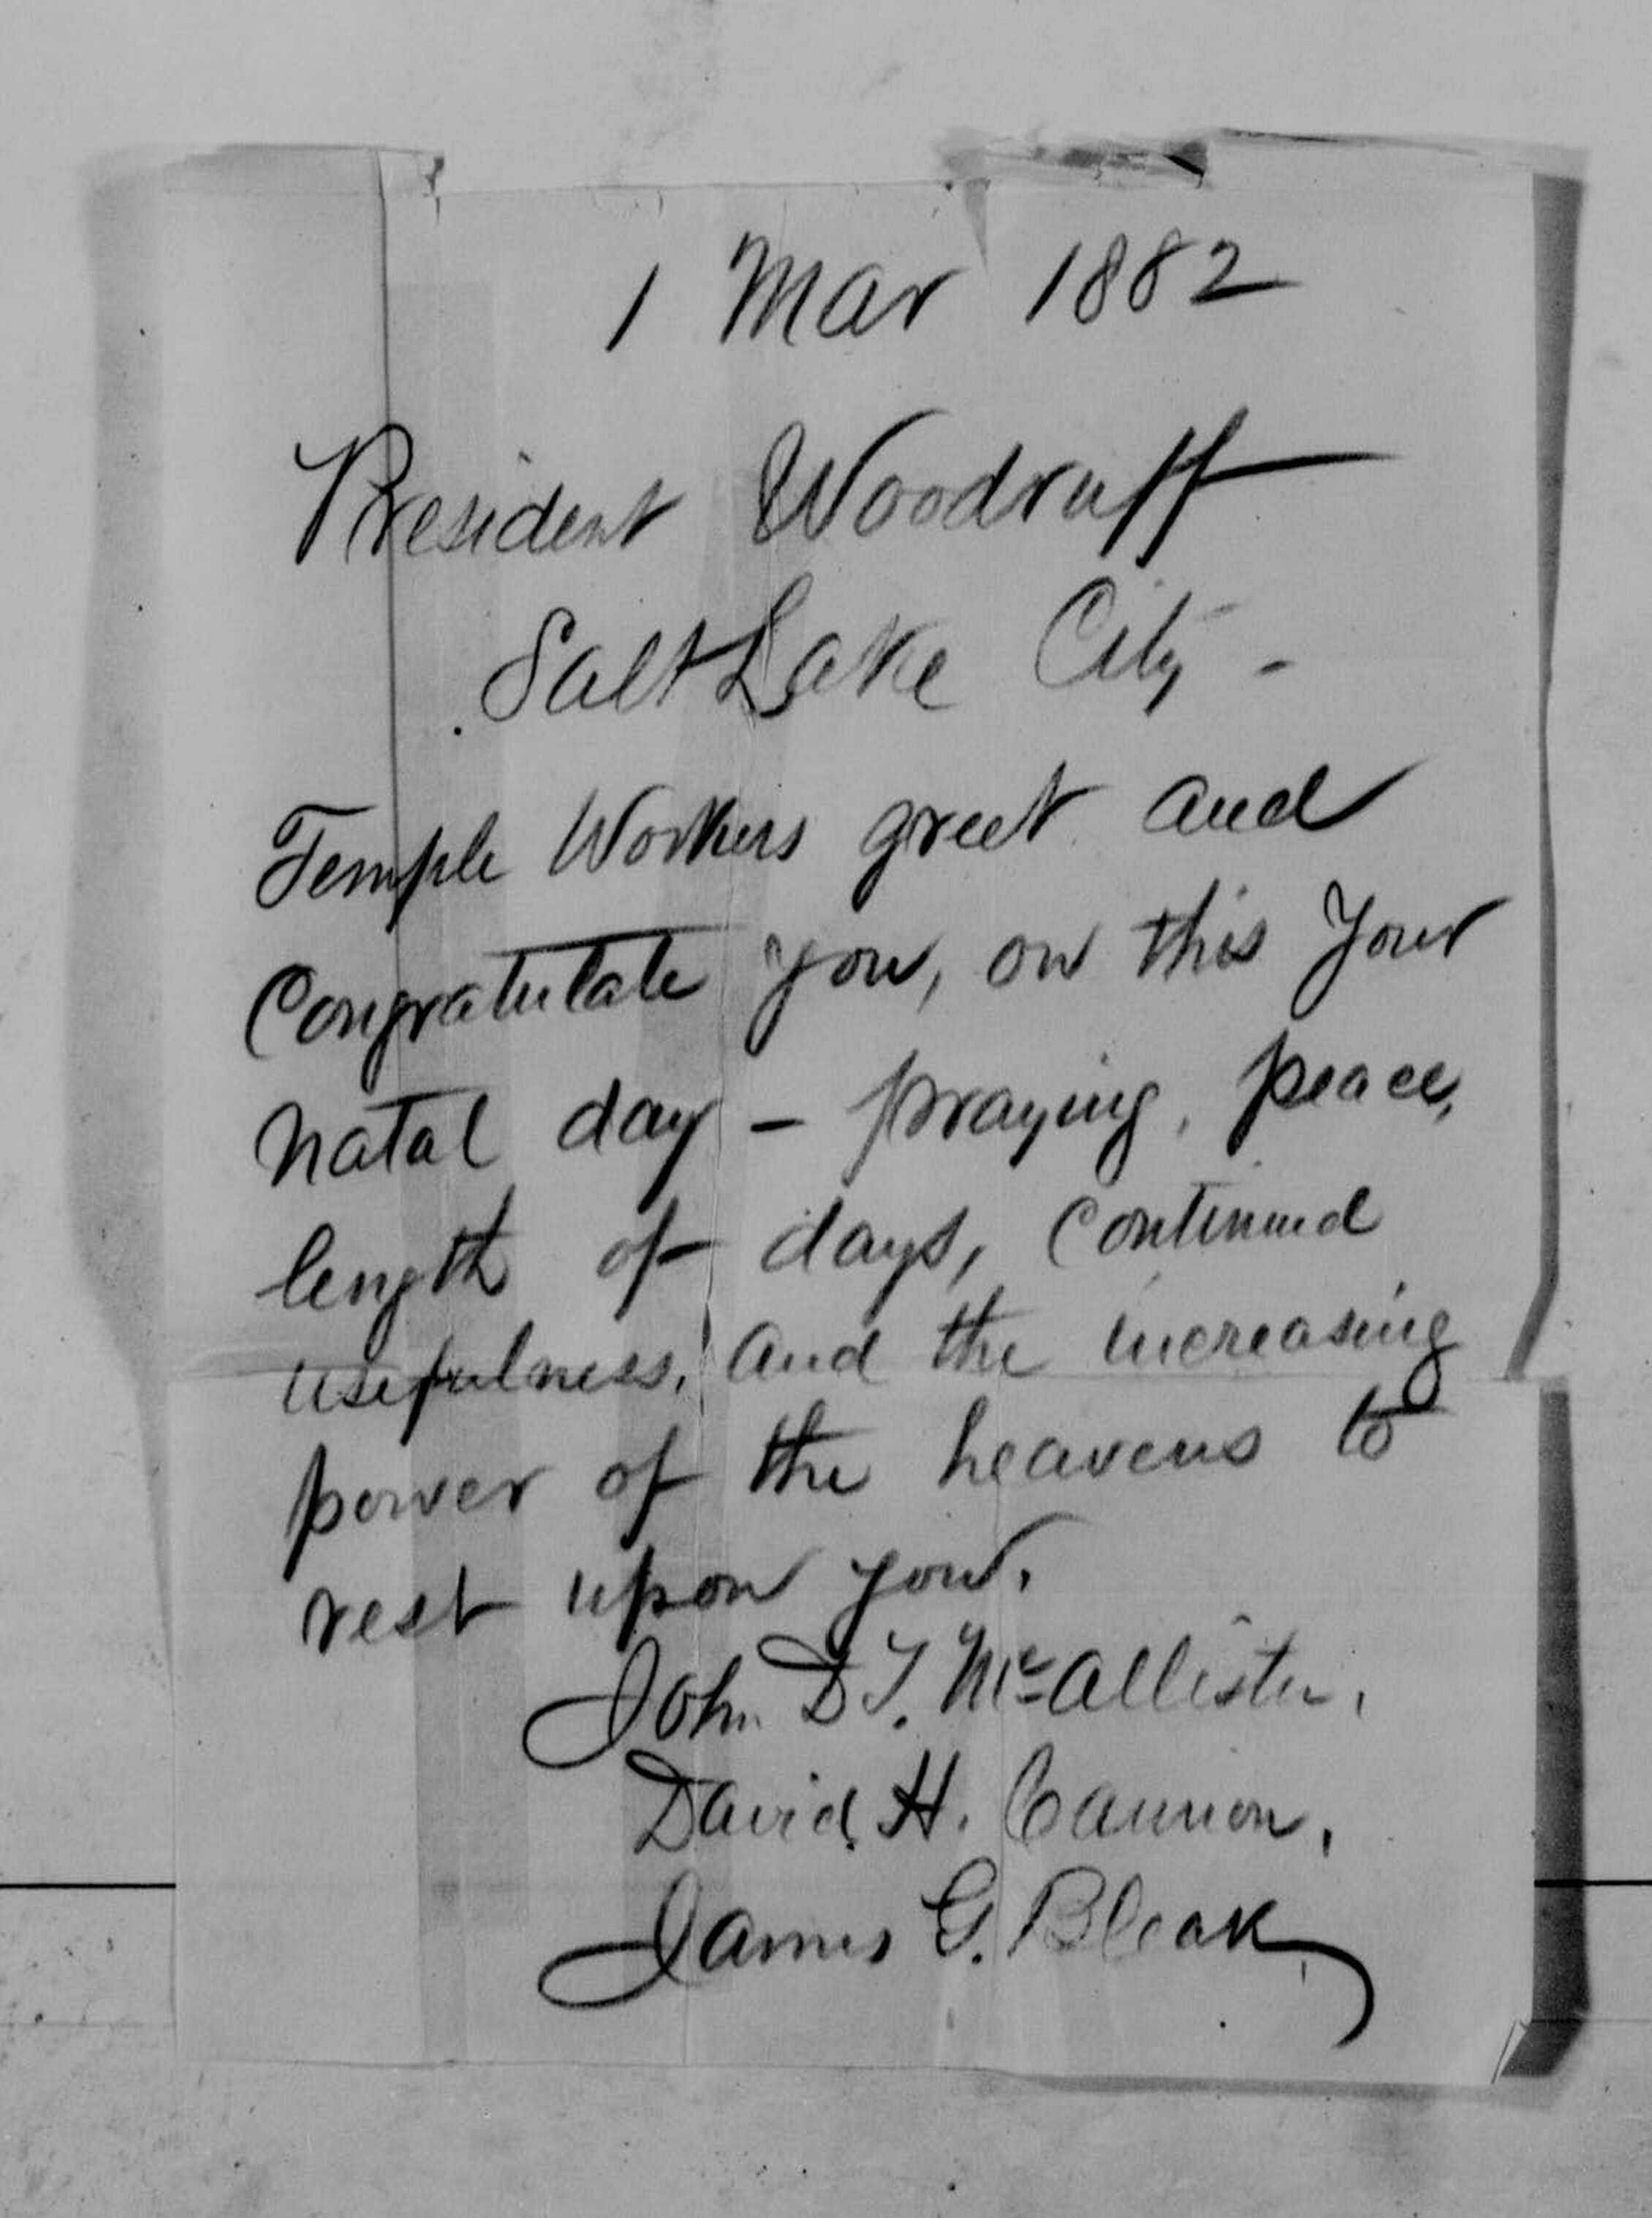 1 Mar 1882
President Woodruff
Salt Lake City -
Temple Workers greet and
Congratulate you, on this Your
natal day - praying, peace,
length of days, Continued
usefulness, and the increasing
power of the heavens to
rest upon you.
John D T. McAllister,
David H. Cannon,
James G. Bleak